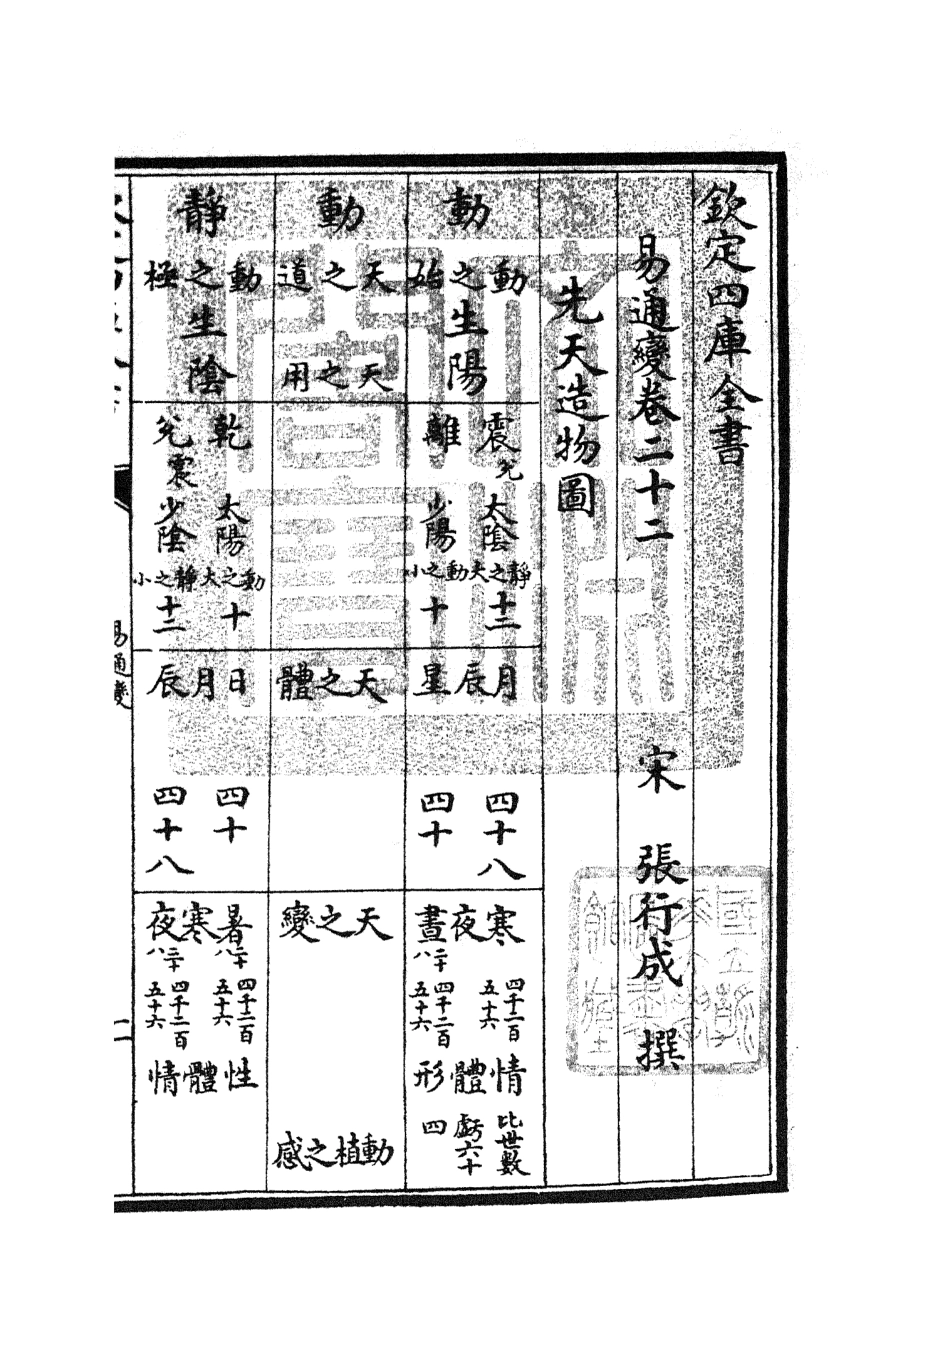 欽定四庫全書
易通變卷二十二 宋 張行成 撰
先天造物圖
動
動之始
生陽
震兌 太陰 靜之大 十二
離 少陽 動之小 十
月辰星
四十八
四十
寒夜晝
二十八
四千一百五十六
四千二百五十六
情體形
比世數虧六十四
動
天之道
天之用
天之體
天之變
動植之感
靜
動之極
生陰
乾 太陽 動之大 十
兌震 少陰 靜之小 十二
日月辰
四十
四十八
暑寒夜
二十八
二十八
四千二百五十六
四千二百五十六
性體情
易通變